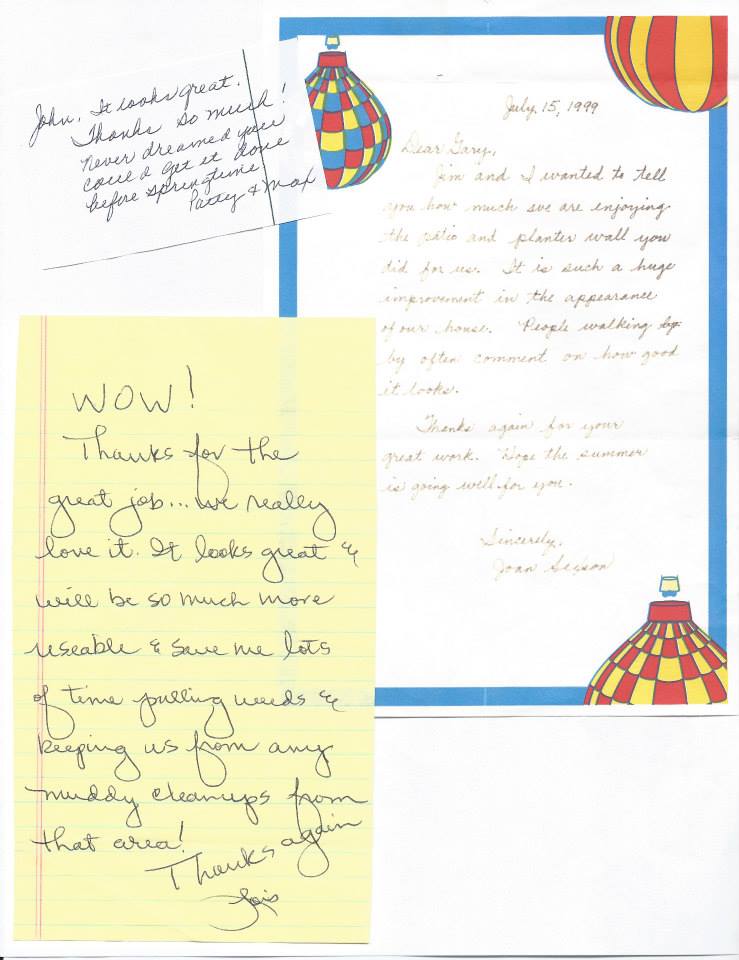 John, It looks great.
Thanks so much!
Never dreamed you
could get it done
before springtime.
Patty & Max
July, 15, 1999
Dear Gary,
Jim and I wanted to tell
you how much we are enjoying
the patio and planter wall you
did for us. It is such a huge
improvement in the appearance
of our house. People walking
by often comment on how good
it looks.
Thanks again for your
great work. Hope the summer
is going well for you.
Sincerely,
Joan
WOW!
Thanks for the
great job... we really
love it. It looks great &
will be so much more
useable & save me lots
of time pulling weeds &
keeping us from any
muddy cleanups from
that area!
Thanks again
Lois